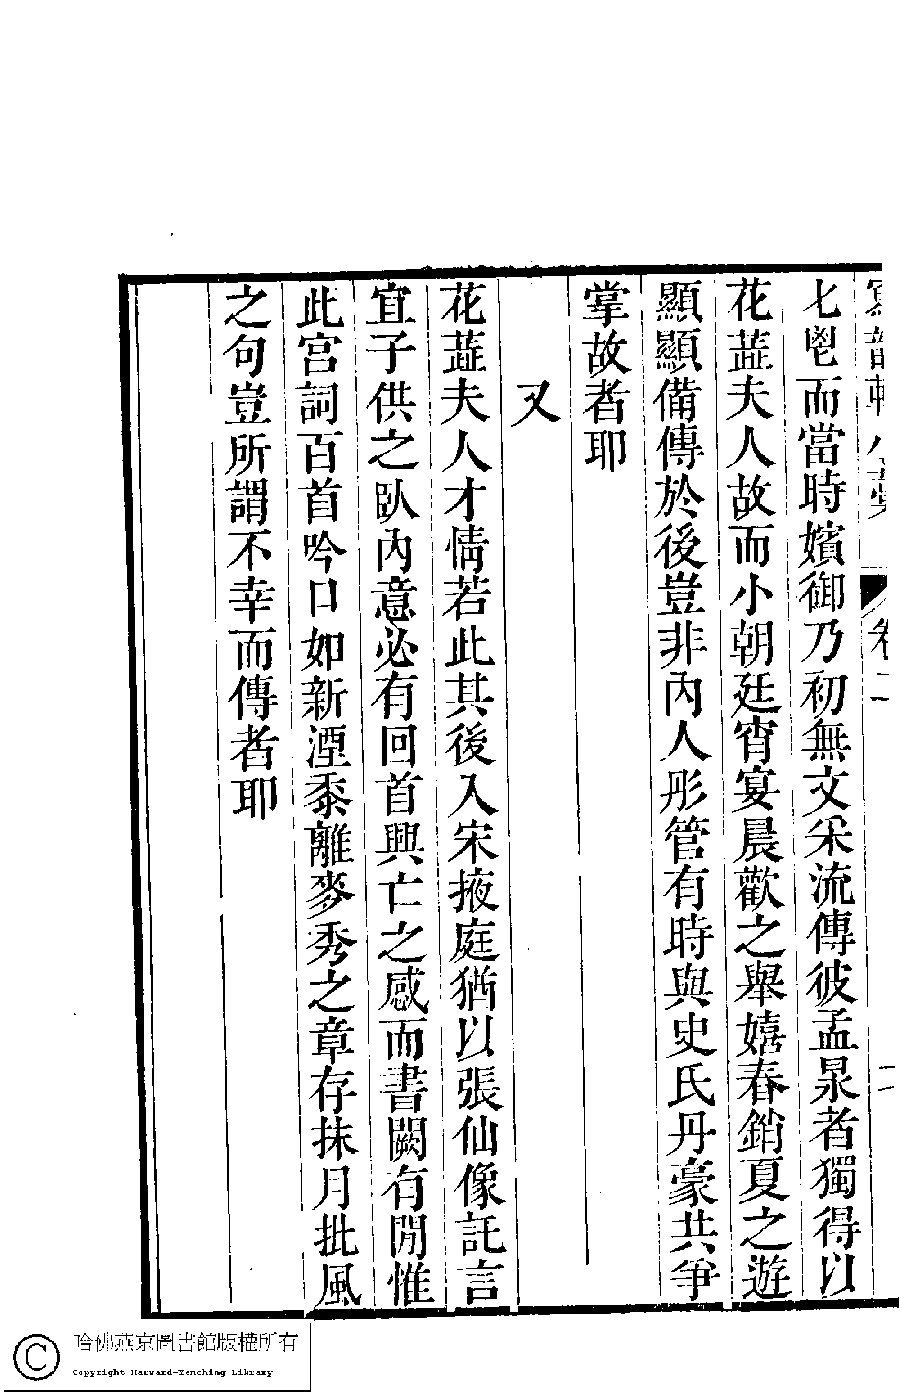 卷二
二
匕鬯而當時嬪御乃初無文采流傳彼孟泉者獨得以
花蕋夫人故而小朝廷宵宴晨歡之舉嬉春銷夏之遊
顯顯備傳於後豈非內人彤管有時與史氏丹豪共爭
掌故者耶
又
花蕋夫人才情若此其後入宋掖庭猶以張仙像託言
宜子供之臥內意必有回首興亡之感而書闕有閒惟
此宮詞百首吟口如新湮黍離麥秀之章存抹月批風
之句豈所謂不幸而傳者耶
哈佛燕京圖書館版權所有
Copyright Harvard-Yenching Library